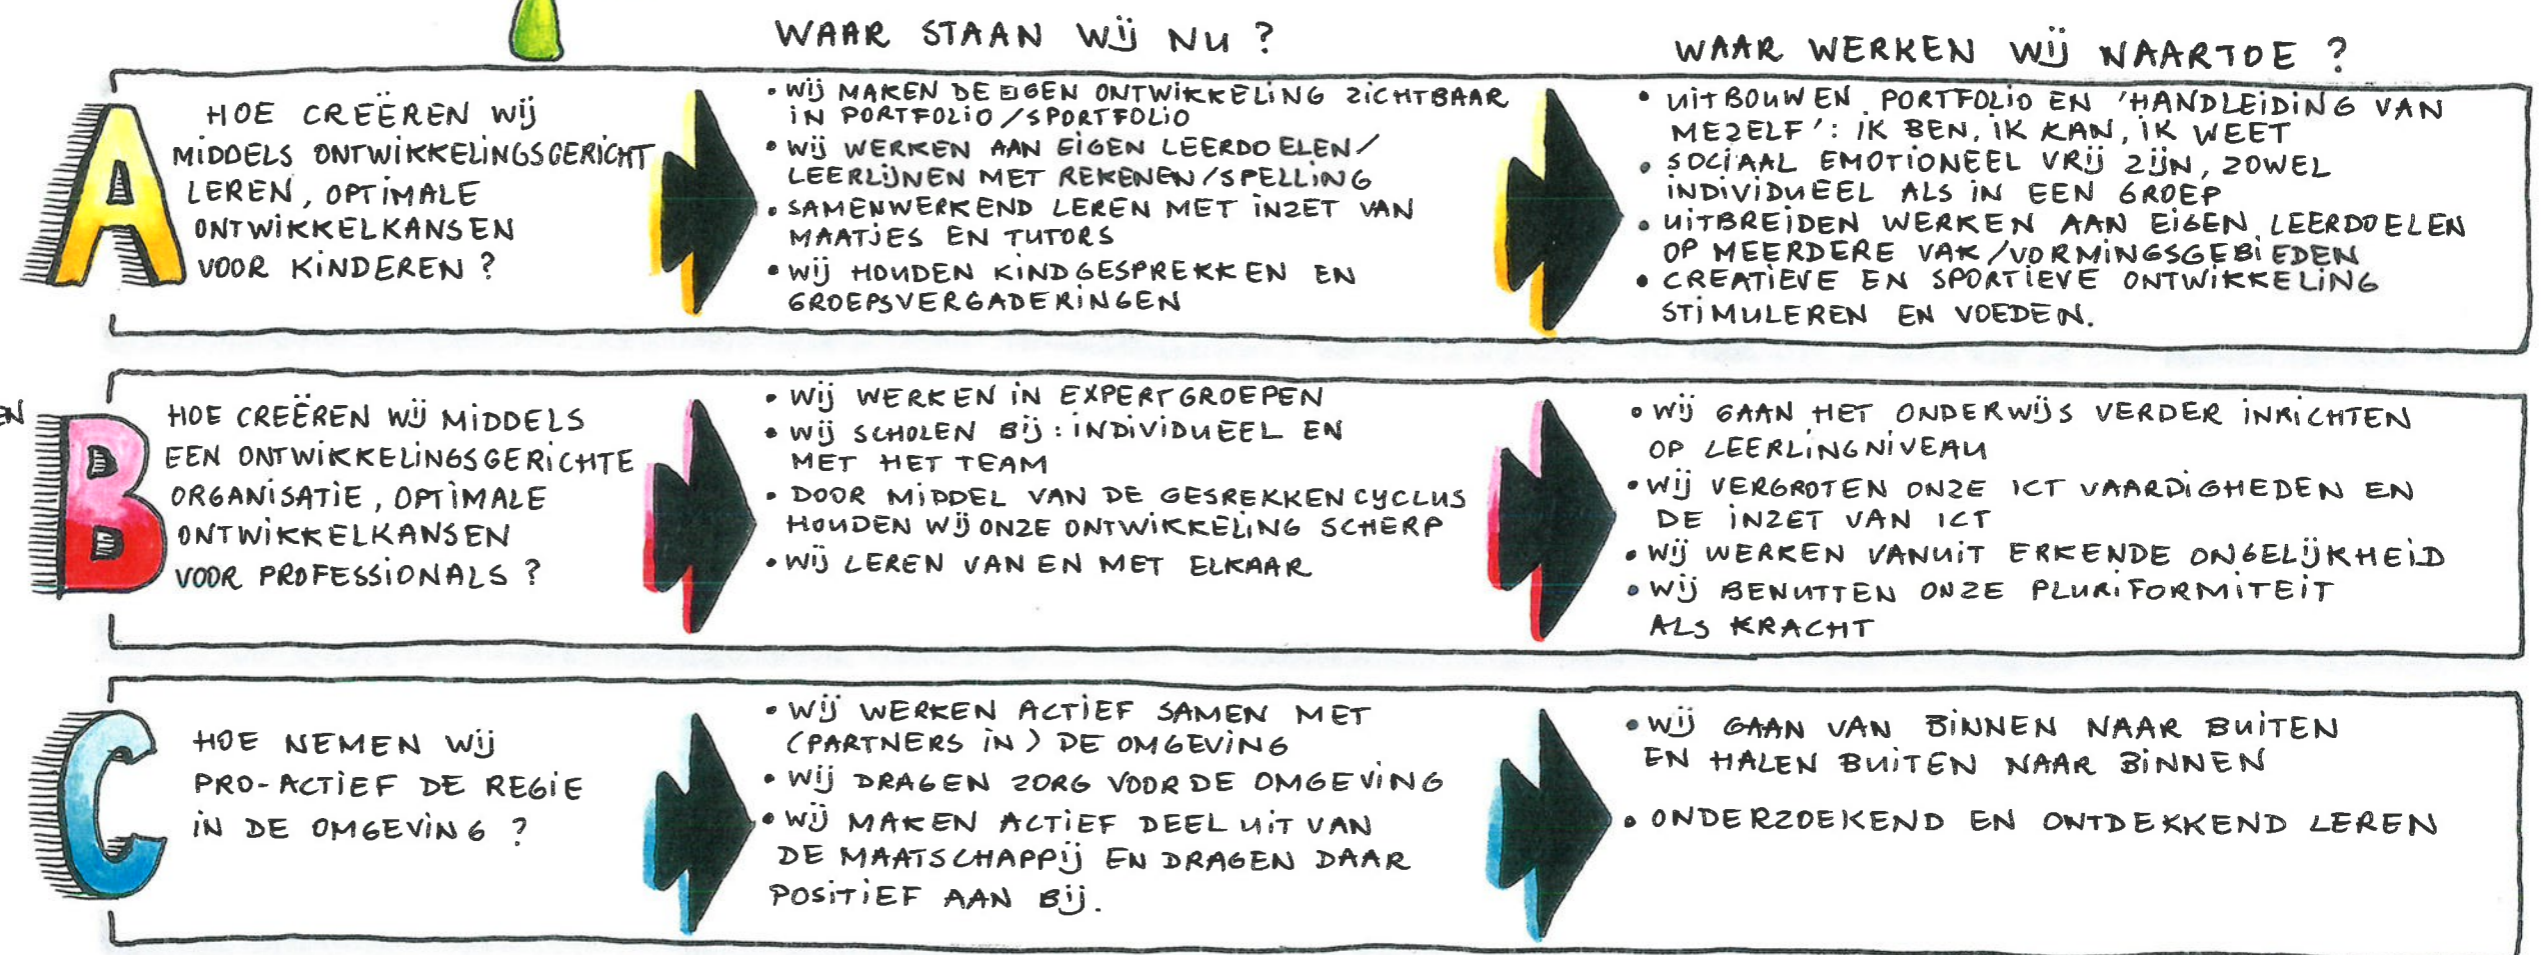 WAAR STAAN WIJ NU ?
WAAR WERKEN WIJ NAARTOE ?
A
HOE CREËREN WIJ
MIDDELS ONTWIKKELINGSGERICHT
LEREN, OPTIMALE
ONTWIKKELKANSEN
VOOR KINDEREN ?
• WIJ MAKEN DE EIGEN ONTWIKKELING ZICHTBAAR
IN PORTFOLIO/SPORTFOLIO
• WIJ WERKEN AAN EIGEN LEERDOELEN/
LEERLIJNEN MET REKENEN/SPELLING
• SAMENWERKEND LEREN MET INZET VAN
MAATJES EN TUTORS
• WIJ HOUDEN KINDGESPREKKEN EN
GROEPSVERGADERINGEN
• UITBOUWEN PORTFOLIO EN 'HANDLEIDING VAN
MEZELF': IK BEN, IK KAN, IK WEET
• SOCIAAL EMOTIONEEL VRIJ ZIJN, ZOWEL
INDIVIDUEEL ALS IN EEN GROEP
• UITBREIDEN WERKEN AAN EIGEN LEERDOELEN
OP MEERDERE VAK/VORMINGSGEBIEDEN
• CREATIEVE EN SPORTIEVE ONTWIKKELING
STIMULEREN EN VOEDEN.
EN
B
HOE CREËREN WIJ MIDDELS
EEN ONTWIKKELINGSGERICHTE
ORGANISATIE, OPTIMALE
ONTWIKKELKANSEN
VOOR PROFESSIONALS ?
• WIJ WERKEN IN EXPERTGROEPEN
• WIJ SCHOLEN BIJ: INDIVIDUEEL EN
MET HET TEAM
• DOOR MIDDEL VAN DE GESREKKENCYCLUS
HOUDEN WIJ ONZE ONTWIKKELING SCHERP
• WIJ LEREN VAN EN MET ELKAAR
• WIJ GAAN HET ONDERWIJS VERDER INRICHTEN
OP LEERLINGNIVEAU
• WIJ VERGROTEN ONZE ICT VAARDIGHEDEN EN
DE INZET VAN ICT
• WIJ WERKEN VANUIT ERKENDE ONGELIJKHEID
• WIJ BENUTTEN ONZE PLURIFORMITEIT
ALS KRACHT
C
HOE NEMEN WIJ
PRO-ACTIEF DE REGIE
IN DE OMGEVING ?
• WIJ WERKEN ACTIEF SAMEN MET
(PARTNERS IN) DE OMGEVING
• WIJ DRAGEN ZORG VOOR DE OMGEVING
• WIJ MAKEN ACTIEF DEEL UIT VAN
DE MAATSCHAPPIJ EN DRAGEN DAAR
POSITIEF AAN BIJ.
• WIJ GAAN VAN BINNEN NAAR BUITEN
EN HALEN BUITEN NAAR BINNEN
• ONDERZOEKEND EN ONTDEKKEND LEREN